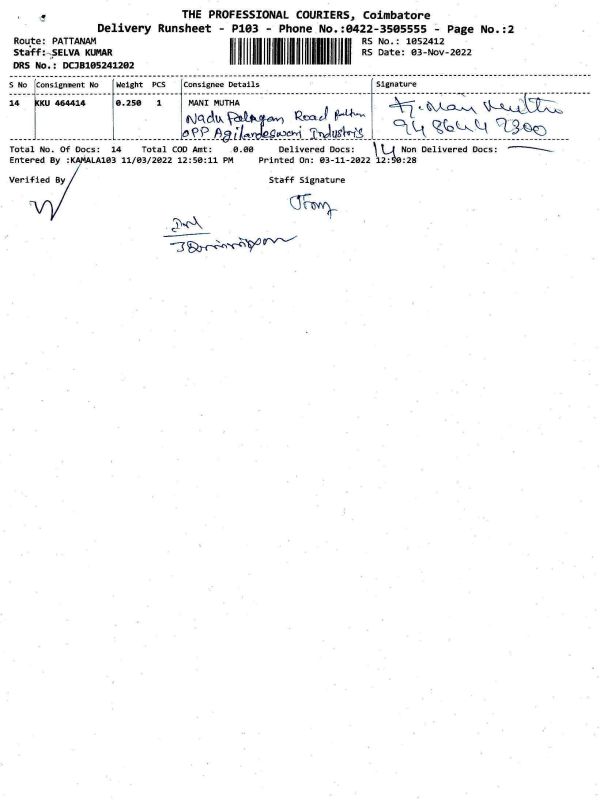 THE PROFESSIONAL COURIERS, Coimbatore
Delivery Runsheet - P103 - Phone No.:0422-3505555 - Page No.:2
Route: PATTANAM
RS No.: 1052412
Staff: SELVA KUMAR
RS Date: 03-Nov-2022
DRS No.: DCJB105241202
S No Consignment No Weight PCS Consignee Details Signature
14 KKU 464414 0.250 1 MANI MUTHA
Nadu Palagan Road
OPP Agilandeswari Industris
Total No. Of Docs: 14 Total COD Amt: 0.00 Delivered Docs: 14 Non Delivered Docs:
Entered By :KAMALA103 11/03/2022 12:50:11 PM Printed On: 03-11-2022 12:50:28
Verified By Staff Signature